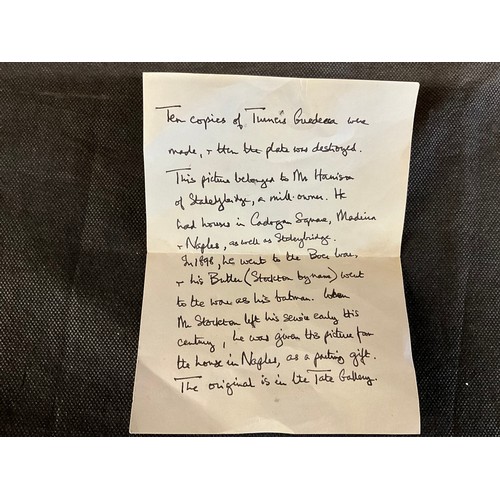 Ten copies of Turner's Guedecca were
made, & then the plate was destroyed.
This picture belonged to Mr Harrison
of Stalybridge, a mill-owner. He
had houses in Cadogan Square, Madeira
& Naples, as well as Staleybridge.
In 1898, he went to the Boer War,
& his Butler (Stockton by name) went
to the war as his batman. When
Mr Stockton left his service early this
century, he was given this picture from
the house in Naples, as a parting gift.
The original is in the Tate Gallery.